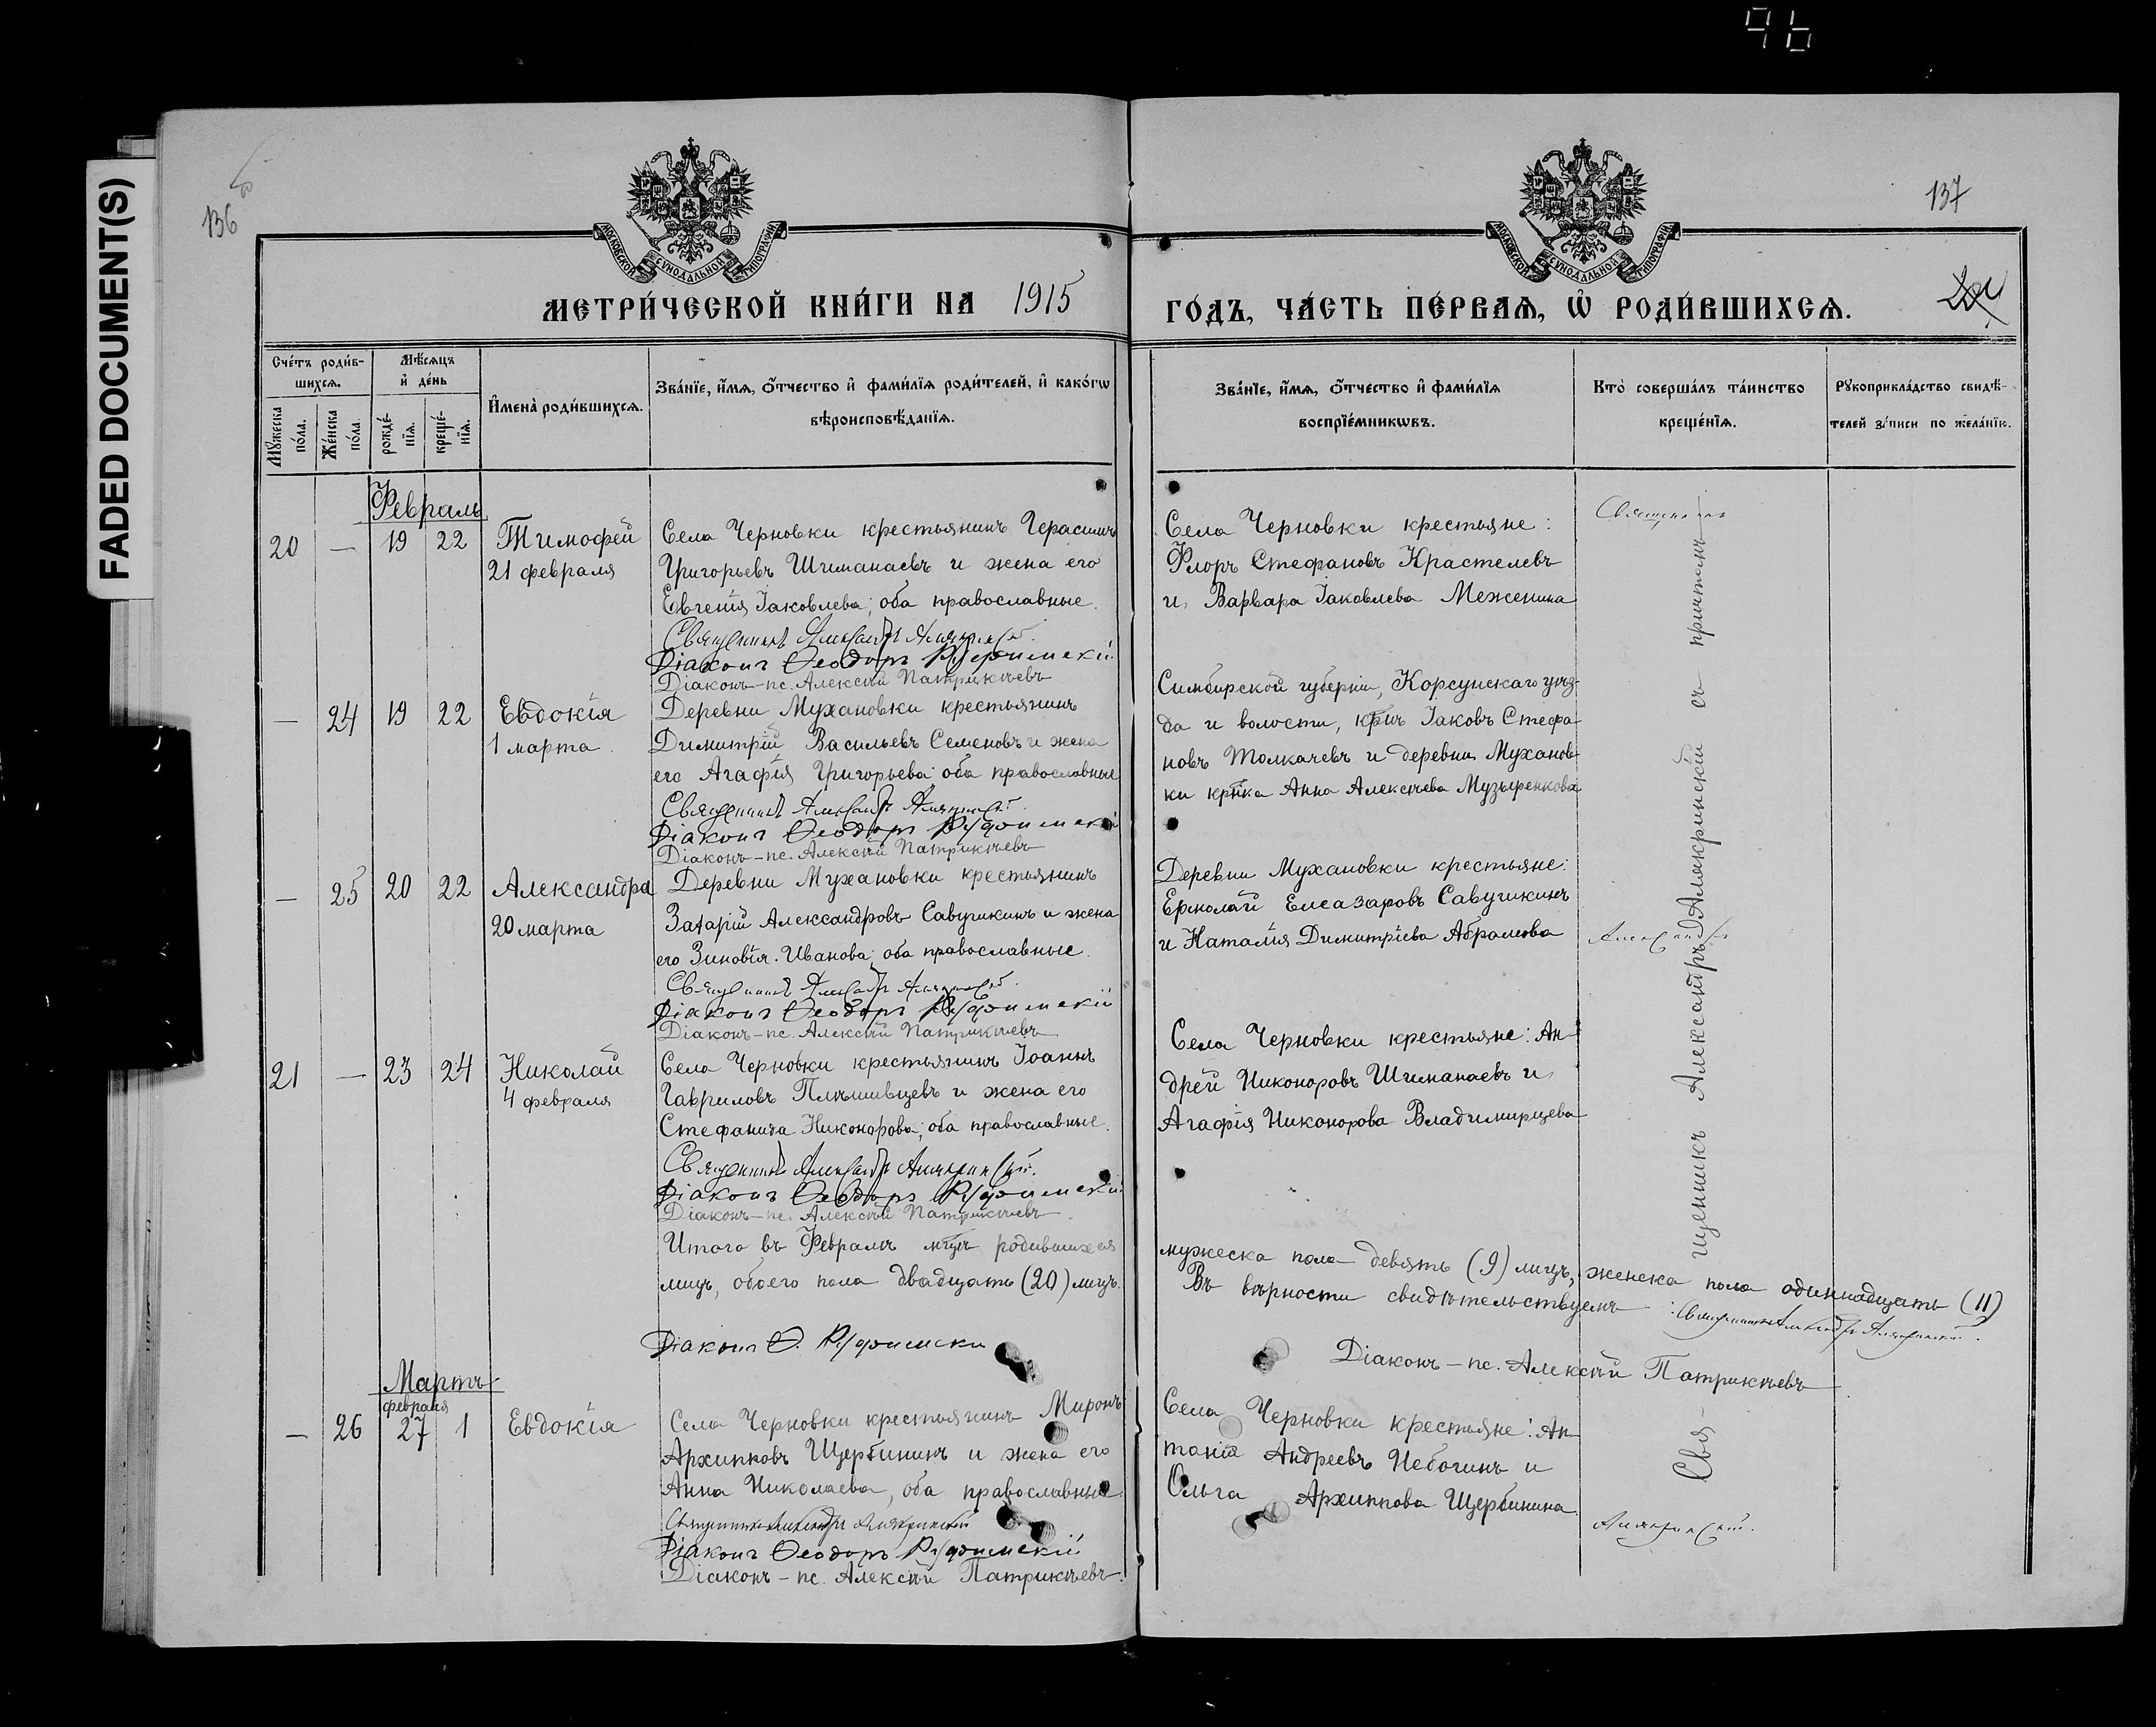 FADED DOCUMENT(S)
96
136
137
МОСКОВСКОЙ СѴНОДАЛЬНОЙ ТИПОГРАФІИ
МОСКОВСКОЙ СѴНОДАЛЬНОЙ ТИПОГРАФІИ
МЕТРИ́ЧЕСКОЙ КНИ́ГИ НА 1915
ГО́ДЪ, ЧА́СТЬ ПЕ́РВАѦ, Ѡ҆ РОДИ́ВШИХСѦ.
Сче́тъ роди́в-
шихсѧ.
Мꙋ́жеска
по́ла.
Же́нска
по́ла.
Мѣ́сѧцъ
и҆ де́нь
рожде́-
нїѧ.
креще́-
нїѧ.
И҆мена̀ роди́вшихсѧ.
Зва́нїе, и҆́мѧ, ѻ҆́тчество и҆ фами́лїѧ роди́телей, и҆ како́гѡ
вѣроисповѣ́данїѧ.
Зва́нїе, и҆́мѧ, ѻ҆́тчество и҆ фами́лїѧ
воспрїе́мникѡвъ.
Кто̀ соверша́лъ та́инство
креще́нїѧ.
Рꙋкоприкла́дство свидѣ́-
телей за́писи по жела́нїю.
Февраль
20 — 19 22 Тимофей
21 февраля
Села Черновки крестьянинъ Герасимъ
Григорьевъ Шиманаевъ и жена его
Евгенія Іаковлева; оба православные.
Священникъ Александръ Алякринскій.
Діаконъ Ѳеодоръ
Діаконъ-пс. Алексѣй Патрикѣевъ
Села Черновки крестьяне:
Флоръ Стефановъ Крастелевъ
и Варвара Іаковлева Меженина
Священникъ
— 24 19 22 Евдокія
1 марта.
Деревни Мухановки крестьянинъ
Димитрій Васильевъ Семеновъ и жена
его Агафія Григорьева оба православные
Священникъ Александръ Алякринскій.
Діаконъ Ѳеодоръ
Діаконъ-пс. Алексѣй Патрикѣевъ
Симбирской губерніи, Корсунскаго уѣз-
да и волости, кр̃нъ Іаковъ Стефа-
новъ Толкачевъ и деревни Муханов-
ки кр̃нка Анна Алексѣева Музыренкова
— 25 20 22 Александра
20 марта
Деревни Мухановки крестьянинъ
Захарій Александровъ Савушкинъ и жена
его Зиновія Иванова; оба православные.
Священникъ Александръ Алякринскій.
Діаконъ Ѳеодоръ
Діаконъ-пс. Алексѣй Патрикѣевъ
Деревни Мухановки крестьяне:
Ермолай Елеазаровъ Савушкинъ
и Наталія Димитріева Абрамова
Александръ
21 — 23 24 Николай
4 февраля
Села Черновки крестьянинъ Іоаннъ
Гавриловъ Плѣшивцевъ и жена его
Стефанида Никонорова; оба православные.
Священникъ Александръ Алякринскій.
Діаконъ Ѳеодоръ
Діаконъ-пс. Алексѣй Патрикѣевъ
Села Черновки крестьяне: Ан-
дрей Никоноровъ Шиманаевъ и
Агафія Никонорова Владимирцева
Итого въ Февралѣ мц̃ѣ родившихся
лицъ, обоего пола двадцать (20) лицъ.
мужеска пола девять (9) лицъ, женска пола одиннадцать (11)
Въ вѣрности свидѣтельствуемъ: Священникъ Александръ Алякринскій.
Діаконъ Ѳ.
Діаконъ-пс. Алексѣй Патрикѣевъ
Мартъ
февраля
— 26 27 1 Евдокія
Села Черновки крестьянинъ Миронъ
Архипповъ Щербининъ и жена его
Анна Николаева, оба православные.
Священникъ Александръ Алякринскій
Діаконъ Ѳеодоръ
Діаконъ-пс. Алексѣй Патрикѣевъ.
Села Черновки крестьяне: Ан-
тоній Андреевъ Небогинъ и
Ольга Архиппова Щербинина
Алякринскій.
Свя-
щенникъ Александръ Алякринскій съ причтомъ